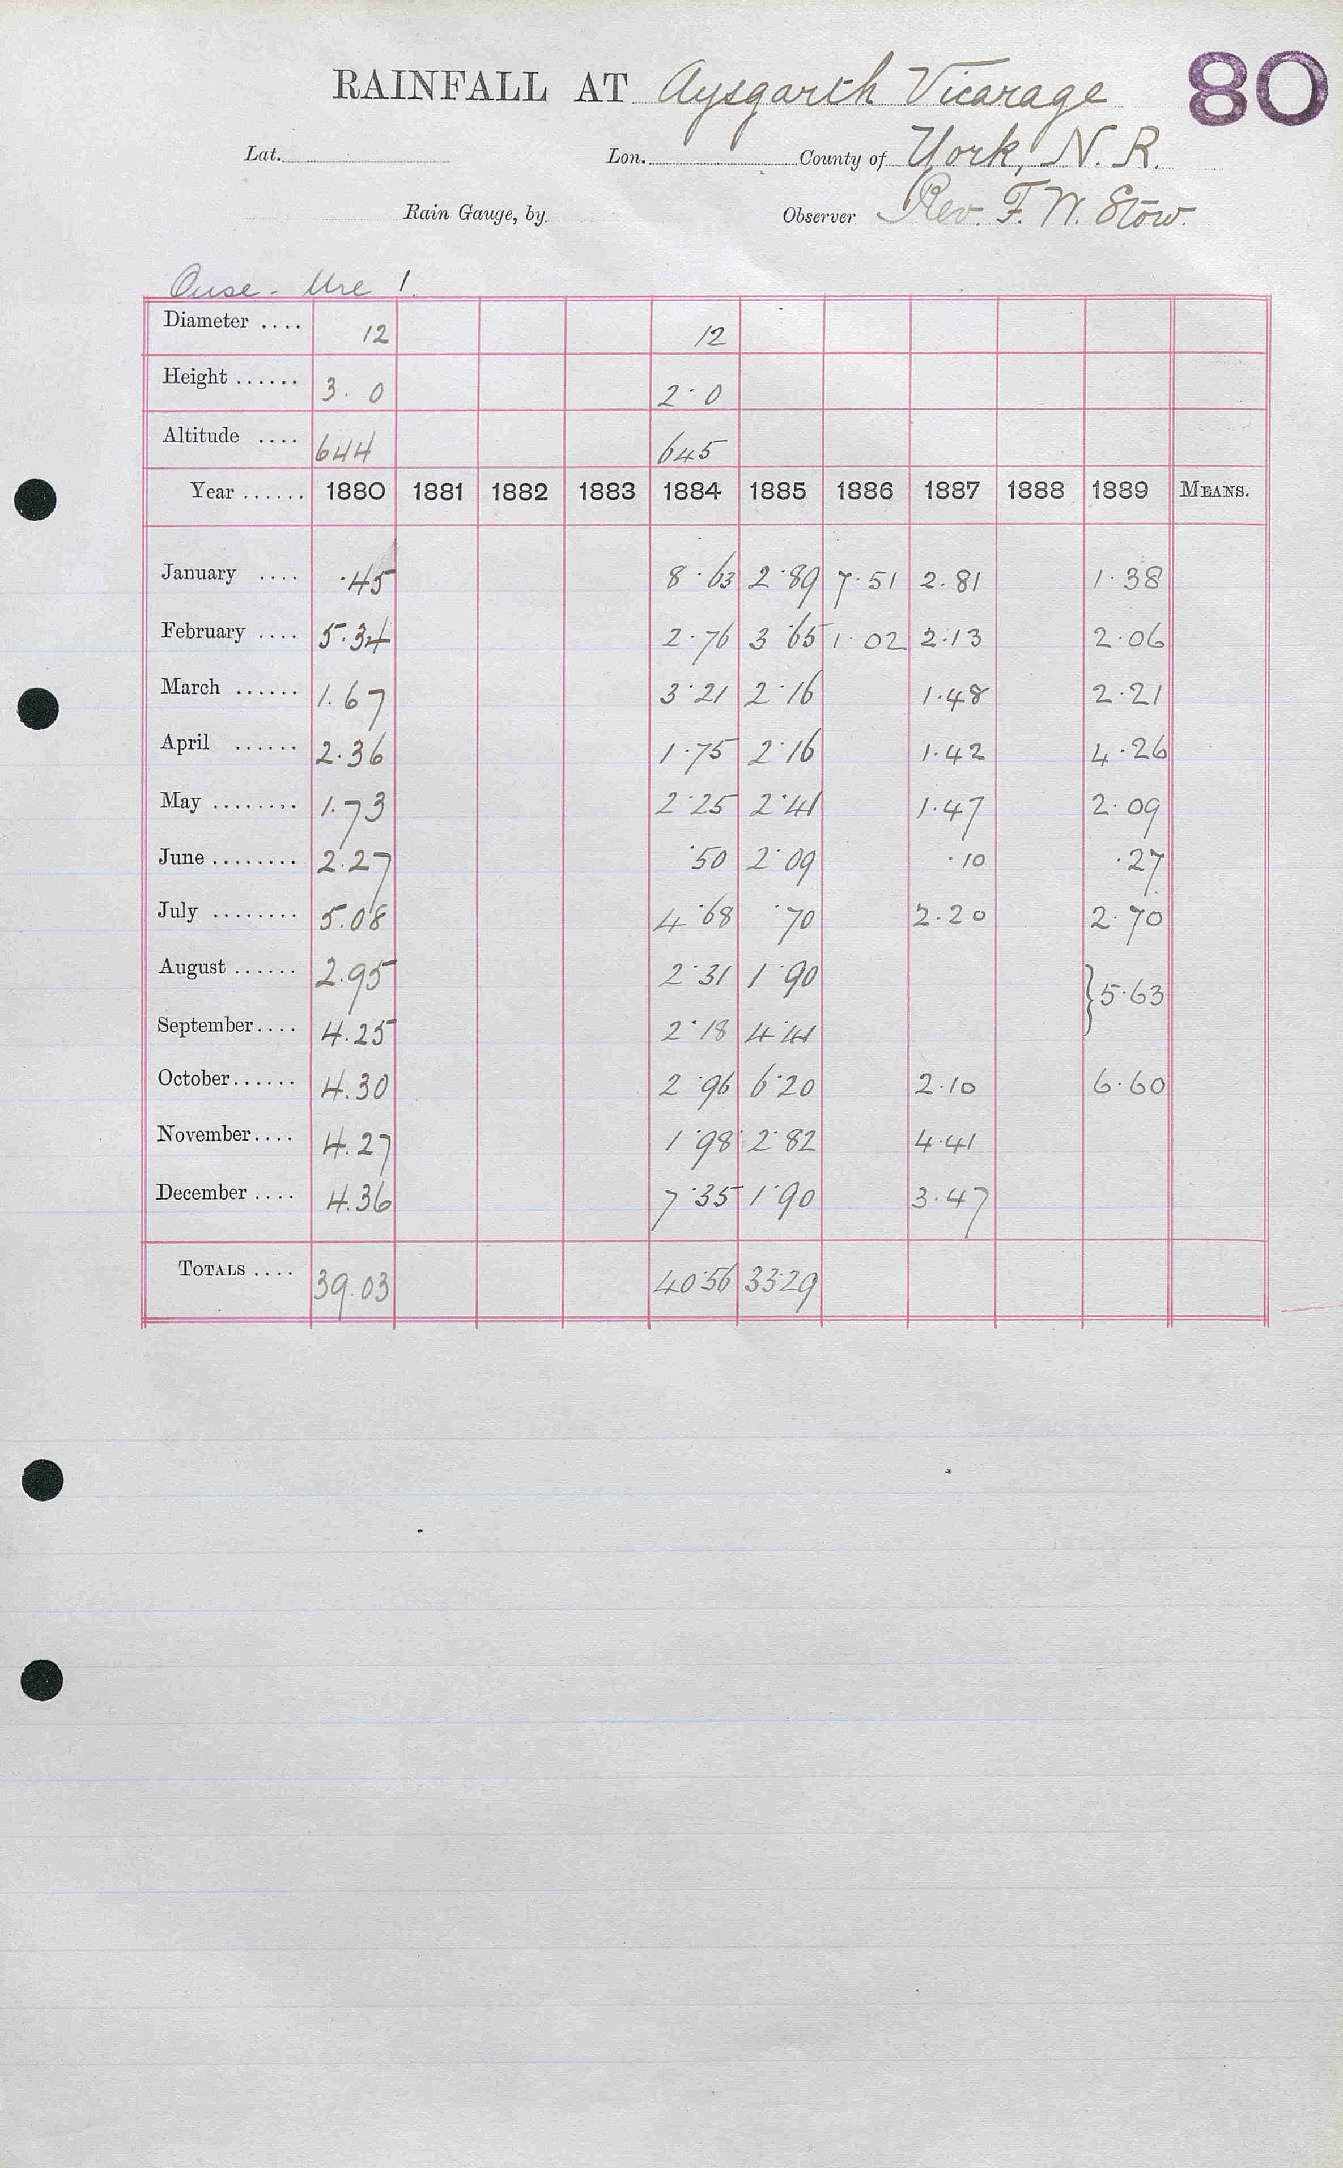 RAINFALL AT Aysgarth Vicarage 80
Lat. Lon. County of York, N. R.
Rain Gauge, by Observer Rev. F. W. Stow.
Ouse - Ure 1.
Diameter .... 12 12
Height ...... 3. 0 2· 0
Altitude .... 644 645
Year ...... 1880 1881 1882 1883 1884 1885 1886 1887 1888 1889 MEANS.
January .... ·45 8·63 2·89 7·51 2.81 1·38
February .... 5.34 2·76 3·65 1·02 2.13 2·06
March ...... 1.67 3·21 2·16 1.48 2·21
April ...... 2.36 1·75 2·16 1.42 4·26
May ........ 1.73 2·25 2·41 1.47 2·09
June ........ 2.27 ·50 2·09 ·10 ·27
July ........ 5.08 4·68 ·70 2.20 2·70
August ...... 2.95 2·31 1·90 } 5·63
September .... 4.25 2·18 4·41
October ...... 4.30 2·96 6·20 2.10 6·60
November .... 4.27 1·98 2·82 4.41
December .... 4.36 7·35 1·90 3.47
TOTALS .... 39.03 40·56 33·29